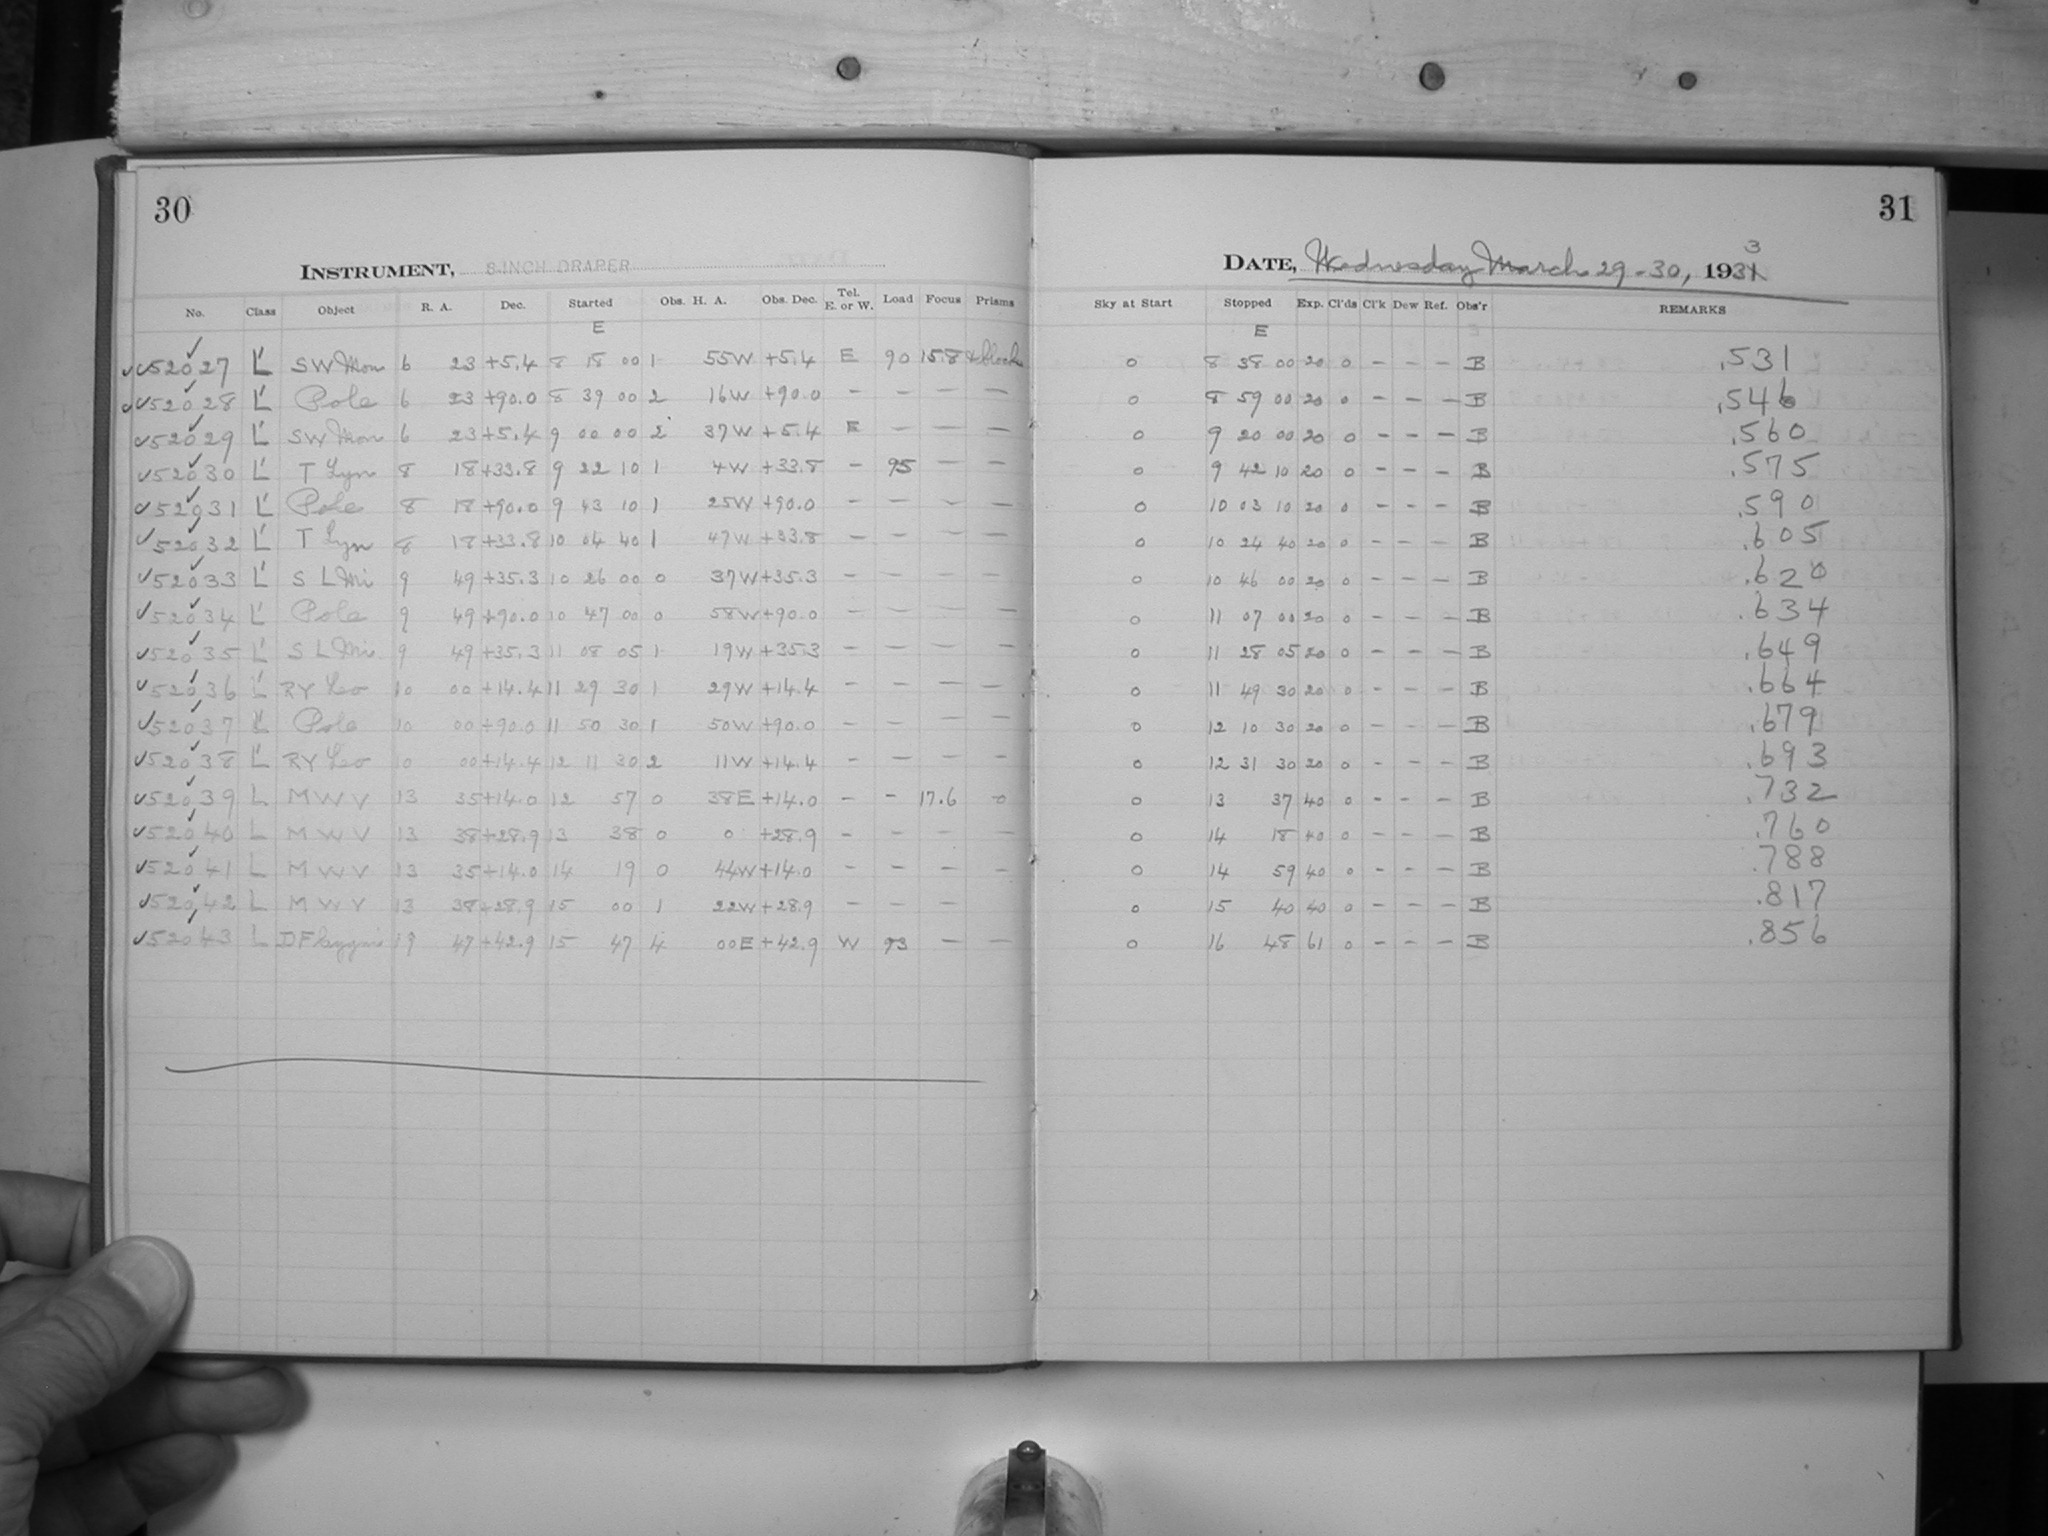 30
INSTRUMENT, 8-INCH DRAPER
No. Class Object R. A. Dec. Started Obs. H. A. Obs. Dec. Tel. E. or W. Load Focus Prisms
E
52027 L' SW Mon 6 23 +5.4 8 18 00 1 55W +5.4 E 90 15.8
52028 L' Pole 6 23 +90.0 8 39 00 2 16W +90.0 — — — —
52029 L' SW Mon 6 23 +5.4 9 00 00 2 37W +5.4 E — — —
52030 L' T Lyn 8 18 +33.8 9 22 10 1 4W +33.8 — 95 — —
52031 L' Pole 8 18 +90.0 9 43 10 1 25W +90.0 — — — —
52032 L' T Lyn 8 18 +33.8 10 04 40 1 47W +33.8 — — — —
52033 L' S L Mi 9 49 +35.3 10 26 00 0 37W +35.3 — — — —
52034 L' Pole 9 49 +90.0 10 47 00 0 58W +90.0 — — — —
52035 L' S L Mi 9 49 +35.3 11 08 05 1 19W +35.3 — — — —
52036 L' RY Leo 10 00 +14.4 11 29 30 1 29W +14.4 — — — —
52037 L' Pole 10 00 +90.0 11 50 30 1 50W +90.0 — — — —
52038 L' RY Leo 10 00 +14.4 12 11 30 2 11W +14.4 — — — —
52039 L M W V 13 35 +14.0 12 57 0 38E +14.0 — — 17.6 0
52040 L M W V 13 38 +28.9 13 38 0 0 +28.9 — — — —
52041 L M W V 13 35 +14.0 14 19 0 44W +14.0 — — — —
52042 L M W V 13 38 +28.9 15 00 1 22W +28.9 — — —
52043 L 19 47 +42.9 15 47 4 00E +42.9 W 93 — —
31
DATE, Wednesday March 29-30, 1931 3
Sky at Start Stopped Exp. Cl'ds Cl'k Dew Ref. Obs'r REMARKS
E
0 8 38 00 20 0 — — — B .531
0 8 59 00 20 0 — — — B .546
0 9 20 00 20 0 — — — B .560
0 9 42 10 20 0 — — — B .575
0 10 03 10 20 0 — — — B .590
0 10 24 40 20 0 — — — B .605
0 10 46 00 20 0 — — — B .620
0 11 07 00 20 0 — — — B .634
0 11 28 05 20 0 — — — B .649
0 11 49 30 20 0 — — — B .664
0 12 10 30 20 0 — — — B .679
0 12 31 30 20 0 — — — B .693
0 13 37 40 0 — — — B .732
0 14 18 40 0 — — — B .760
0 14 59 40 0 — — — B .788
0 15 40 40 0 — — — B .817
0 16 48 61 0 — — — B .856